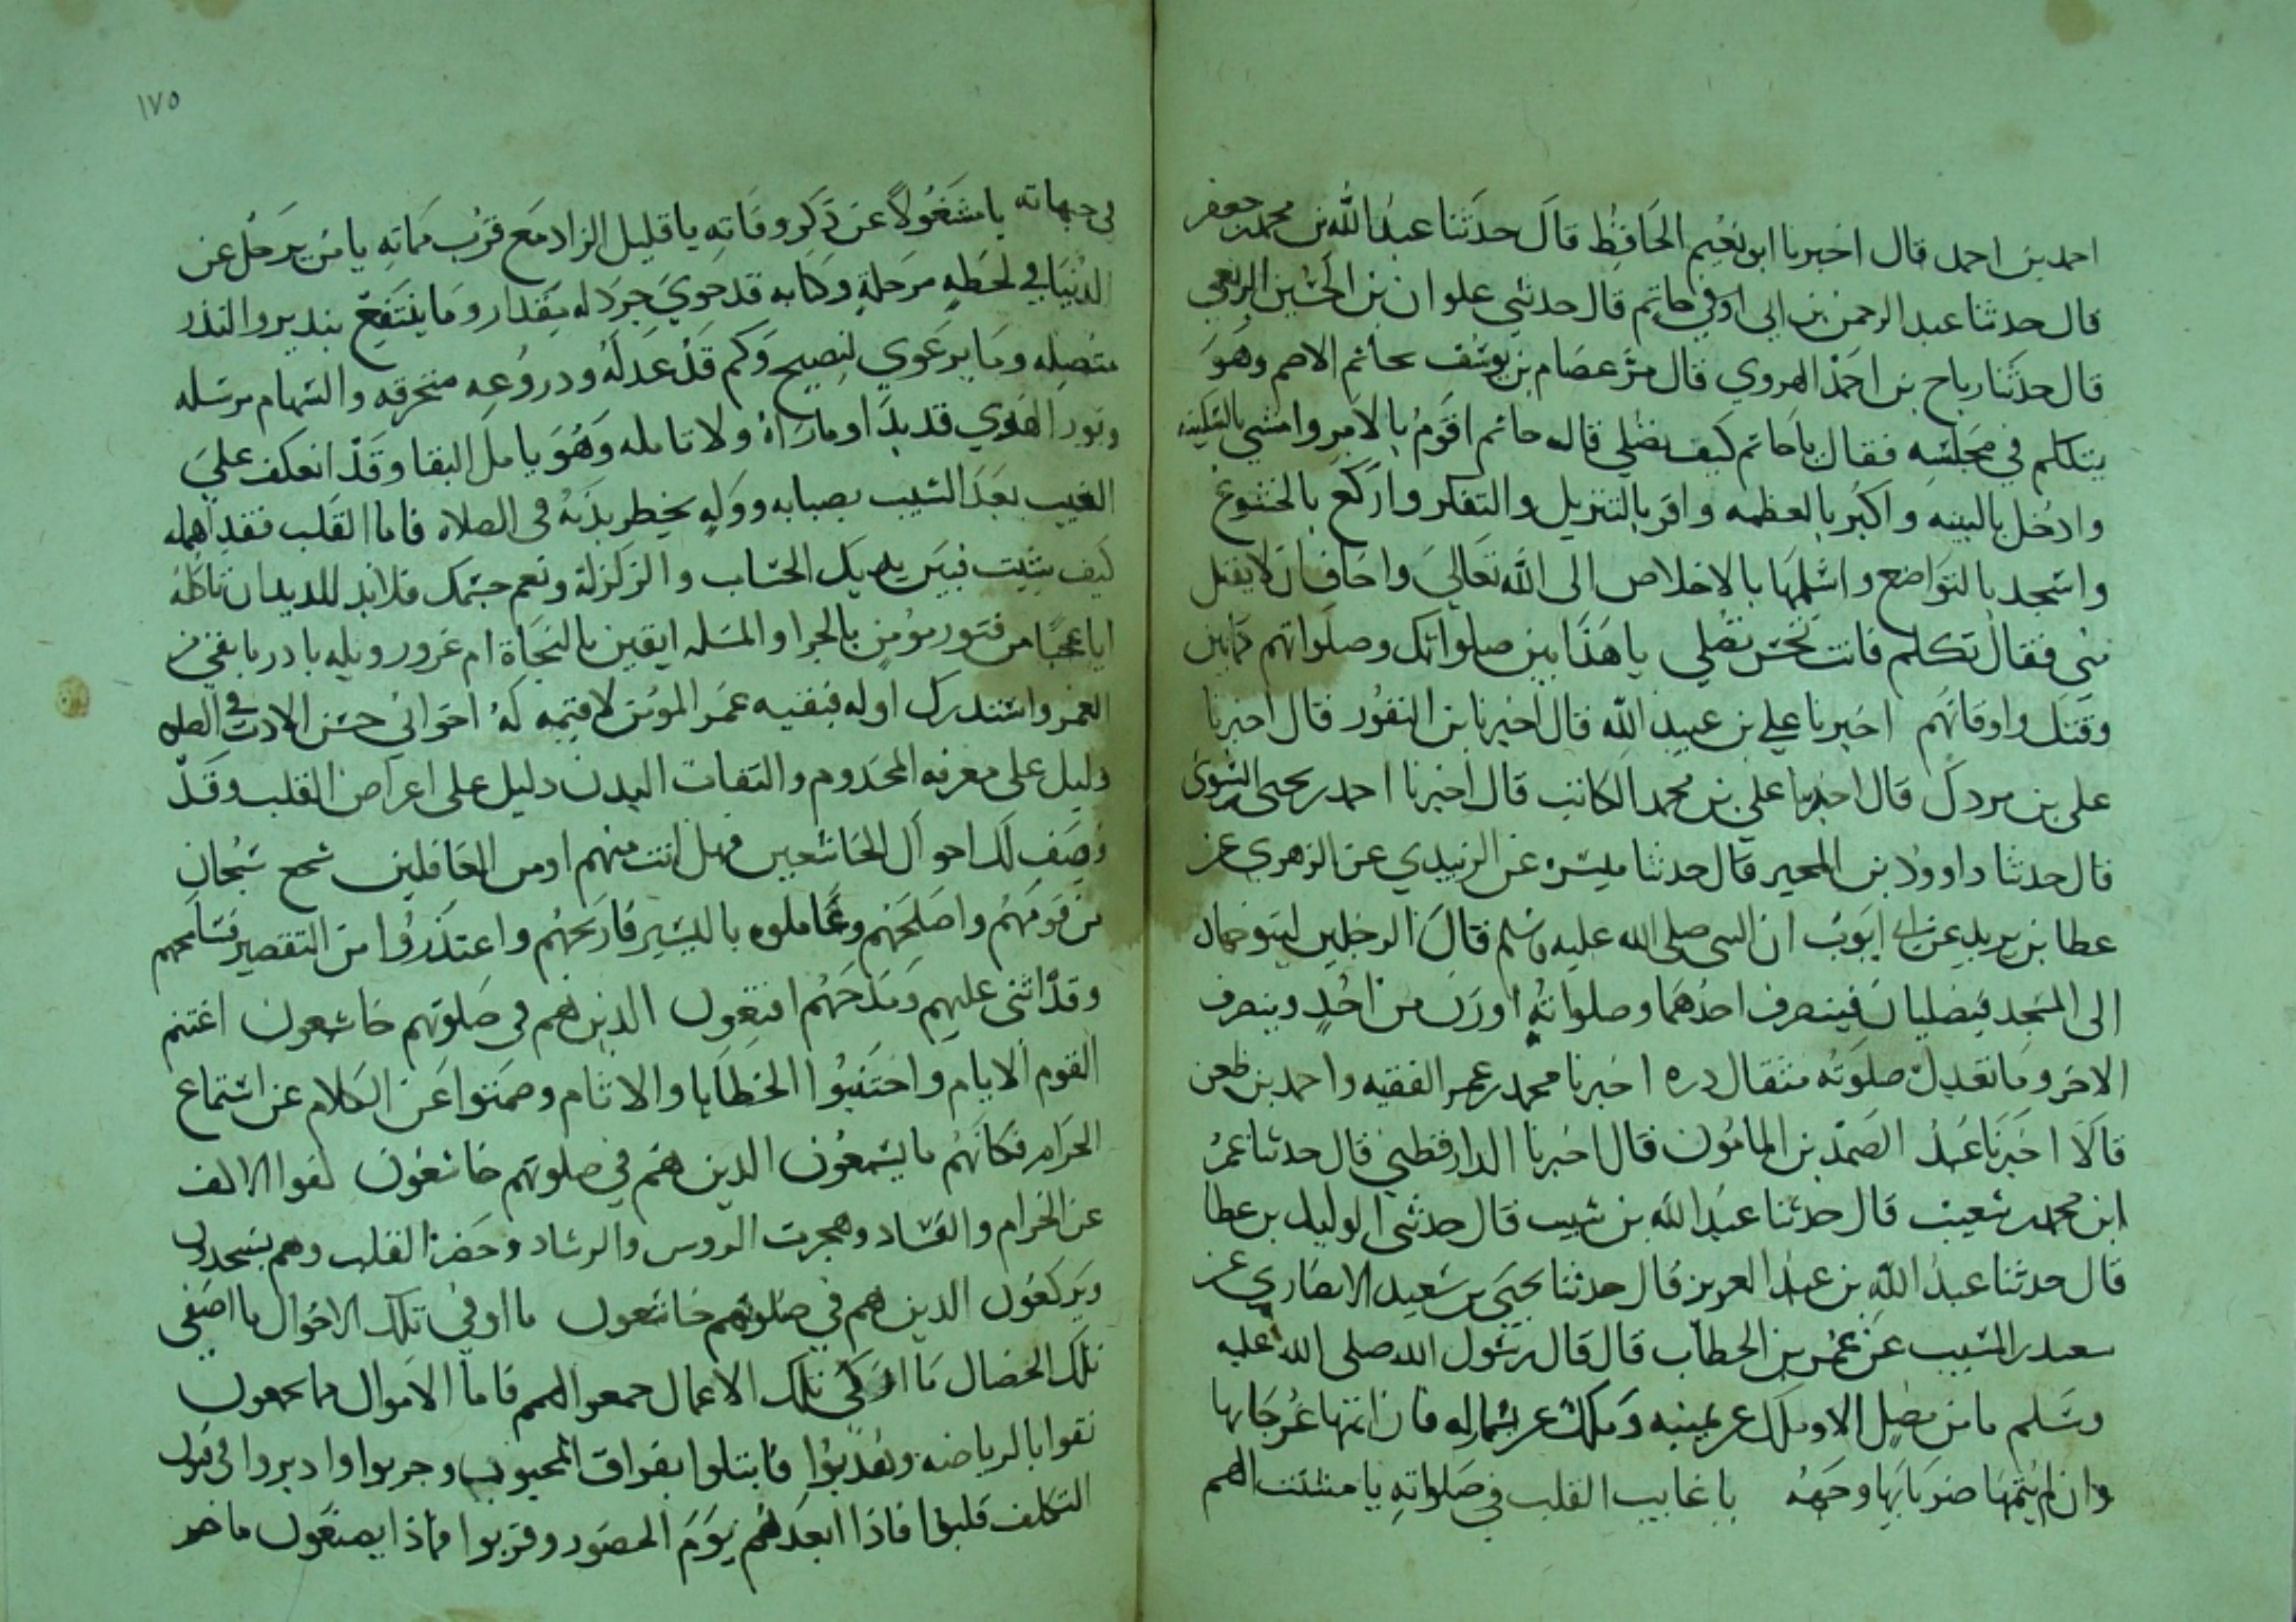 احمد بن احمد قال اخبرنا ابو نعيم الحافظ قال حدثنا عبد الله بن محمد بن جعفر
قال حدثنا عبد الرحمن بن ابي اوفي حاتم قال حدثني علوان بن الحسين الربعي
قال حدثنا رباح بن احمد الهروي قال مر عصام بن يوسف بحاتم الاصم وهو
يتكلم في مجلسه فقال يا حاتم كيف تصلي قال حاتم اقوم بالامر وامشي بالسكينه
وادخل بالنيه واكبر بالعظمه واقر بالتنزيل والتفكر واركع بالخشوع
واسجد بالتواضع واسلمها بالاخلاص الى الله تعالى واخاف ان لا يقبل
مني فقال تكلم فانت تحسن تصلي يا هذا بين صلواتك وصلواتهم كما بين
وقتك واوقاتهم اخبرنا علي بن عبيد الله قال اخبرنا بن النقور قال اخبرنا
علي بن مردك قال اخبرنا علي بن محمد الكاتب قال اخبرنا احمد بن يحيى
قال حدثنا داوود بن المحبر قال حدثنا ميسره عن الزبيدي عن الزهري عن
عطا بن يزيد عن ابي ايوب ان النبي صلى الله عليه وسلم قال ان الرجلين ليتوجهان
الى المسجد فيصليان فينصرف احدهما وصلواته اوزن من احد وينصرف
الاخر وما تعدل صلوته مثقال ذره اخبرنا محمد بن عمر الفقيه واحمد بن ظفر
قالا اخبرنا عبد الصمد بن المامون قال اخبرنا الدارقطني قال حدثنا عمر
ابن محمد شعيب قال حدثنا عبد الله بن شبيب قال حدثني الوليد بن عطا
قال حدثنا عبد الله بن عبد العزيز قال حدثنا يحيى بن سعيد الانصاري عن
سعيد بن المسيب عن عمر بن الخطاب قال قال رسول الله صلى الله عليه
وسلم ما من مصل الا وملك عن يمينه وملك عن يساره فان اتمها عرجا بها
وان لم يتمها ضربا بها وجهه يا غايب القلب في صلواته يا مشتت الهم
في جهاته يا مشغولا عن ذكر وفاته يا قليل الزاد مع قرب مماته يا من يرحل عن
الدنيا في لحظه مرحلة وكتابه قد حوي خردله بمقدار وما ينتفع بنذير والنذر
متصله وما يرعوي لنصيح وكم قد عدله ودروعه منخرقه والسهام مرسله
ونور الهدي قد بدا وما راه ولا تامله وهو يامل البقا وقد انعكف علي
العيب بعد الشيب بصبابه ووله يخطر بدنه في الصلاه فاما القلب فقد اهمله
كيف شيت فبين يديك الحساب والزلزلة ونعم جسمك فلا بد للديدان تاكله
ايا عجبا من فتور مؤمن بالجزا والمسله ايقين بالنجاة ام غرور وبله بادر ما بقي من
العمر واستدرك اوله فبقيه عمر المومن لا قيمه له اخواني حسن الادب في الصلوه
دليل على معرفه المخدوم والتفات البدن دليل على اعراض القلب وقد
وصف لك احوال الخاشعين فهل انت منهم او من الغافلين شجع سبحان
من قومهم واصلحهم وعاملوه باليسير فاربحهم واعتذروا من التقصير فسامحهم
وقد اثنى عليهم ومدحهم الذين هم في صلوتهم خاشعون اغتنم
القوم الايام واجتنبوا الخطايا والاثام وصمتوا عن الكلام عن استماع
الحرام فكانهم ما يسمعون الذين هم في صلوتهم خاشعون كفوا الاكف
عن الحرام والفساد وهجرت الروس والرشاد وحضر القلب وهم يسجدون
ويركعون الذين هم في صلوتهم خاشعون ما اوفى تلك الاحوال ما اصفى
تلك الخصال ما ازكى تلك الاعمال جمعوا الهمم فاما الاموال فما يجمعون
بالرياضه فابتلوا بفراق المحبوب وجربوا
التكلف قليلا فاذا ابعدهم يوم الحضور وقربوا فماذا يصنعون
١٧٥